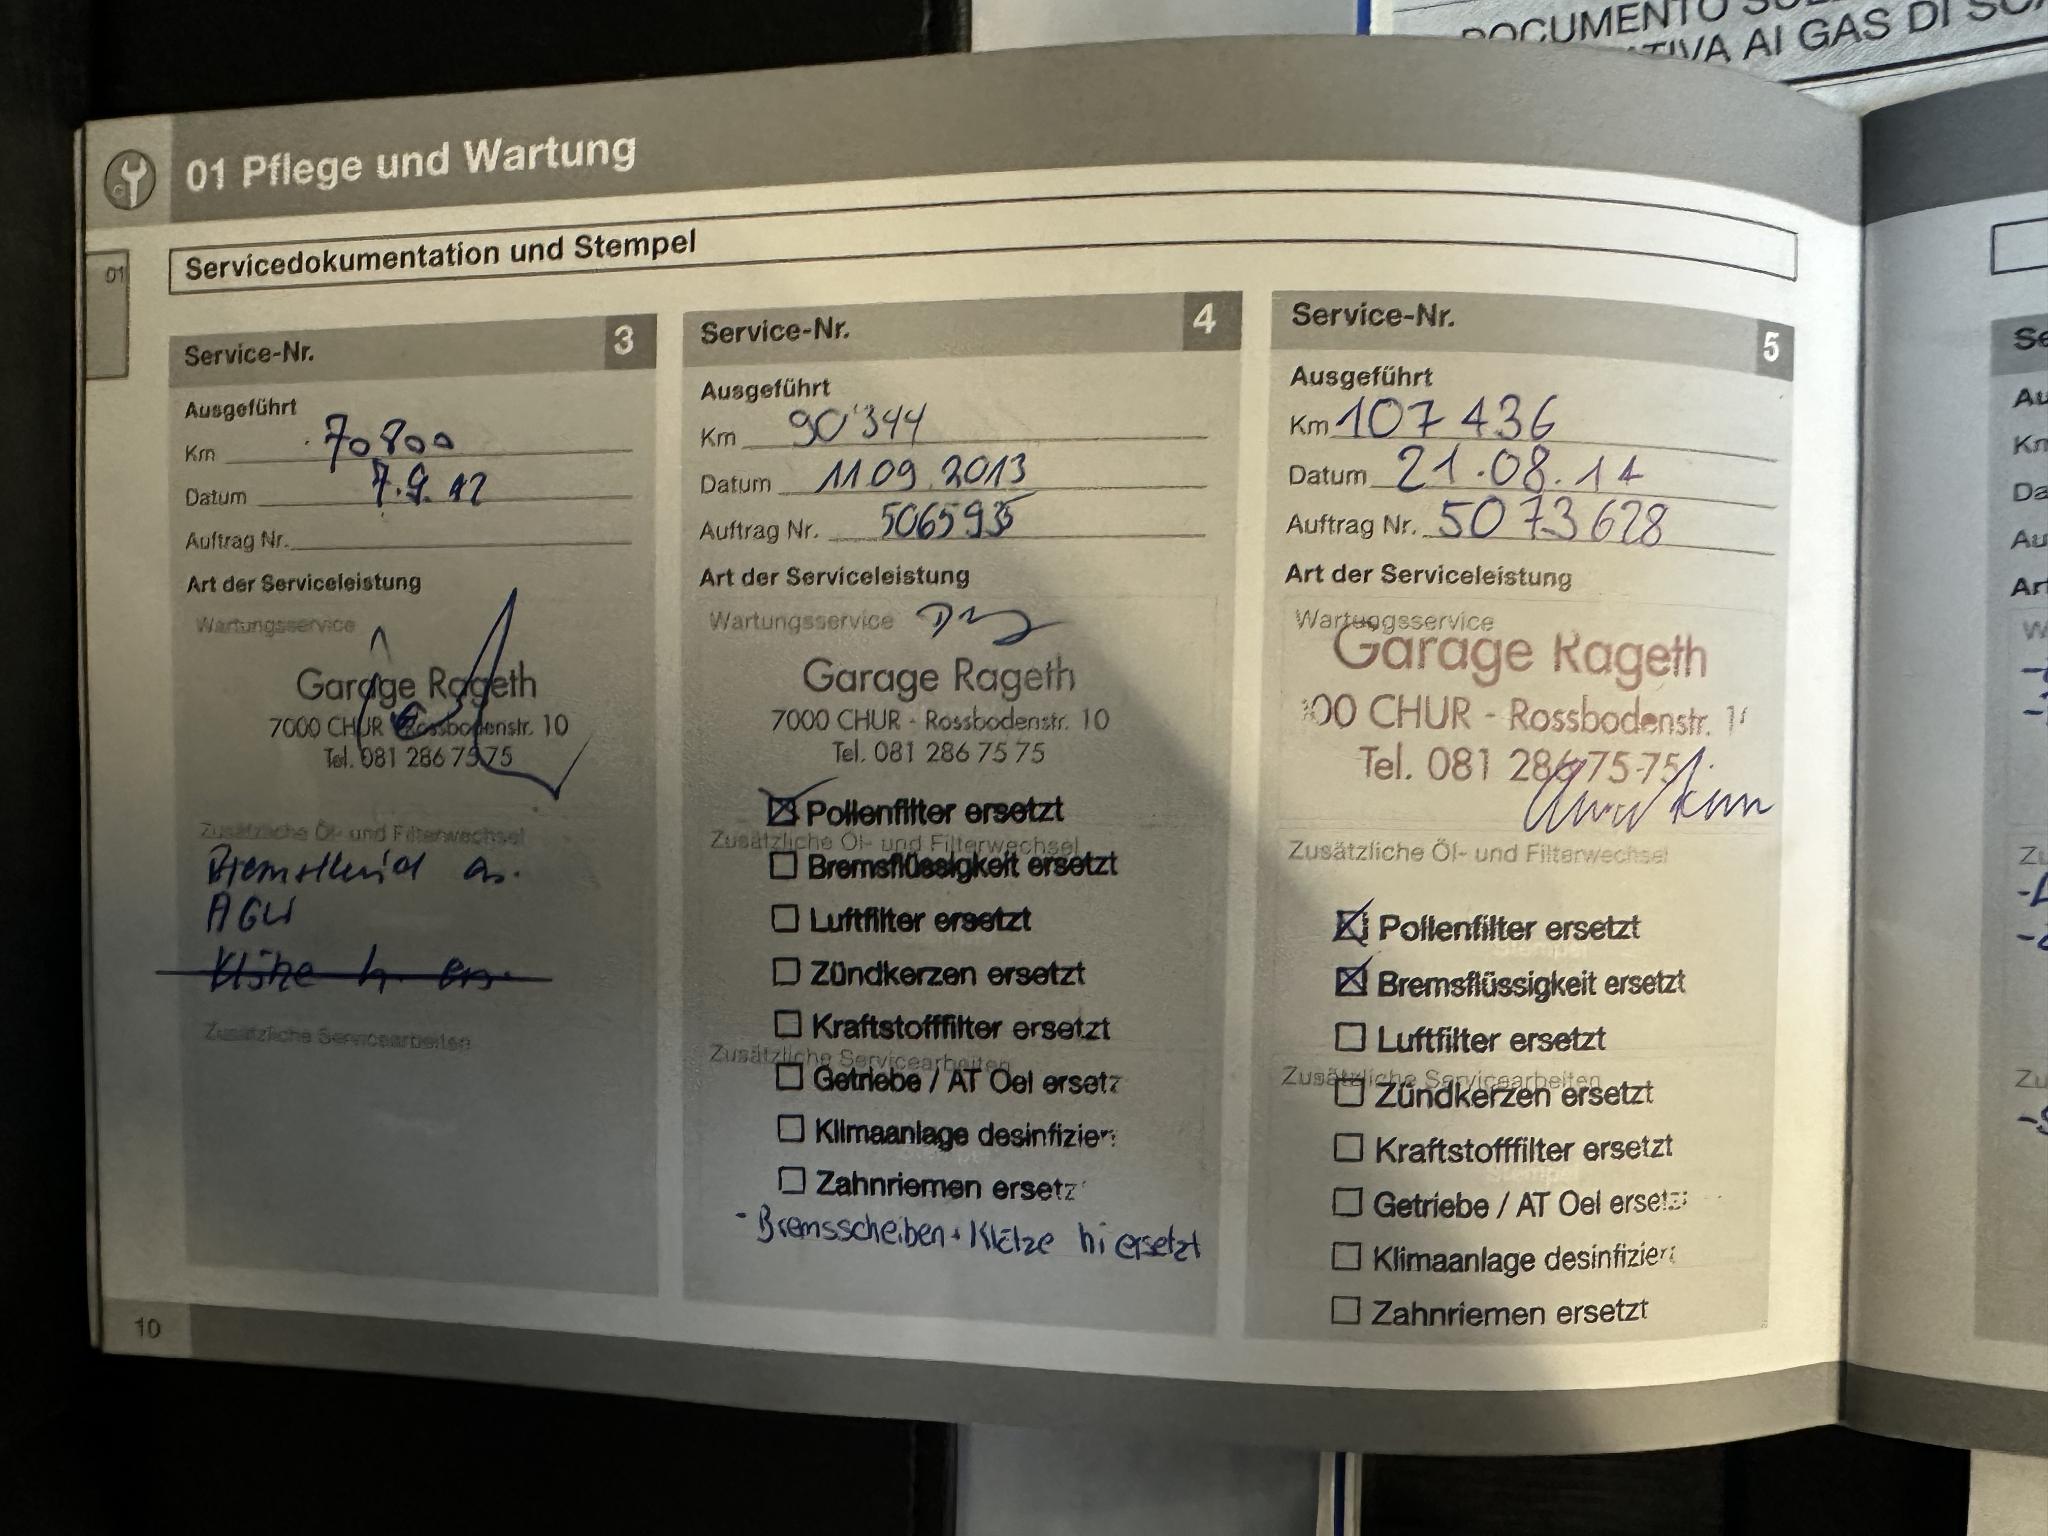 DOCUMENTO
AI GAS DI
01 Pflege und Wartung
01
Servicedokumentation und Stempel
Service-Nr. 3
Ausgeführt
Km 70800
Datum 7.9.12
Auftrag Nr.
Art der Serviceleistung
Wartungsservice
Garage Rageth
7000 CHUR - Rossbodenstr. 10
Tel. 081 286 75 75
Zusätzliche Öl- und Filterwechsel
AGW
Klötze h. ers.
Zusätzliche Servicearbeiten
Service-Nr. 4
Ausgeführt
Km 90'344
Datum 11 09 2013
Auftrag Nr. 506593
Art der Serviceleistung
Wartungsservice
Garage Rageth
7000 CHUR - Rossbodenstr. 10
Tel. 081 286 75 75
Pollenfilter ersetzt
Zusätzliche Öl- und Filterwechsel
Bremsflüssigkeit ersetzt
Luftfilter ersetzt
Zündkerzen ersetzt
Kraftstofffilter ersetzt
Zusätzliche Servicearbeiten
Getriebe / AT Oel ersetz
Klimaanlage desinfizier
Zahnriemen ersetz
- Bremsscheiben + Klötze hi ersetzt
Service-Nr. 5
Ausgeführt
Km 107 436
Datum 21.08.14
Auftrag Nr. 5073628
Art der Serviceleistung
Wartungsservice
Garage Rageth
00 CHUR - Rossbodenstr. 1
Tel. 081 286 75 75
Zusätzliche Öl- und Filterwechsel
Pollenfilter ersetzt
Bremsflüssigkeit ersetzt
Luftfilter ersetzt
Zusätzliche Servicearbeiten
Zündkerzen ersetzt
Kraftstofffilter ersetzt
Getriebe / AT Oel ersetz
Klimaanlage desinfizier
Zahnriemen ersetzt
10